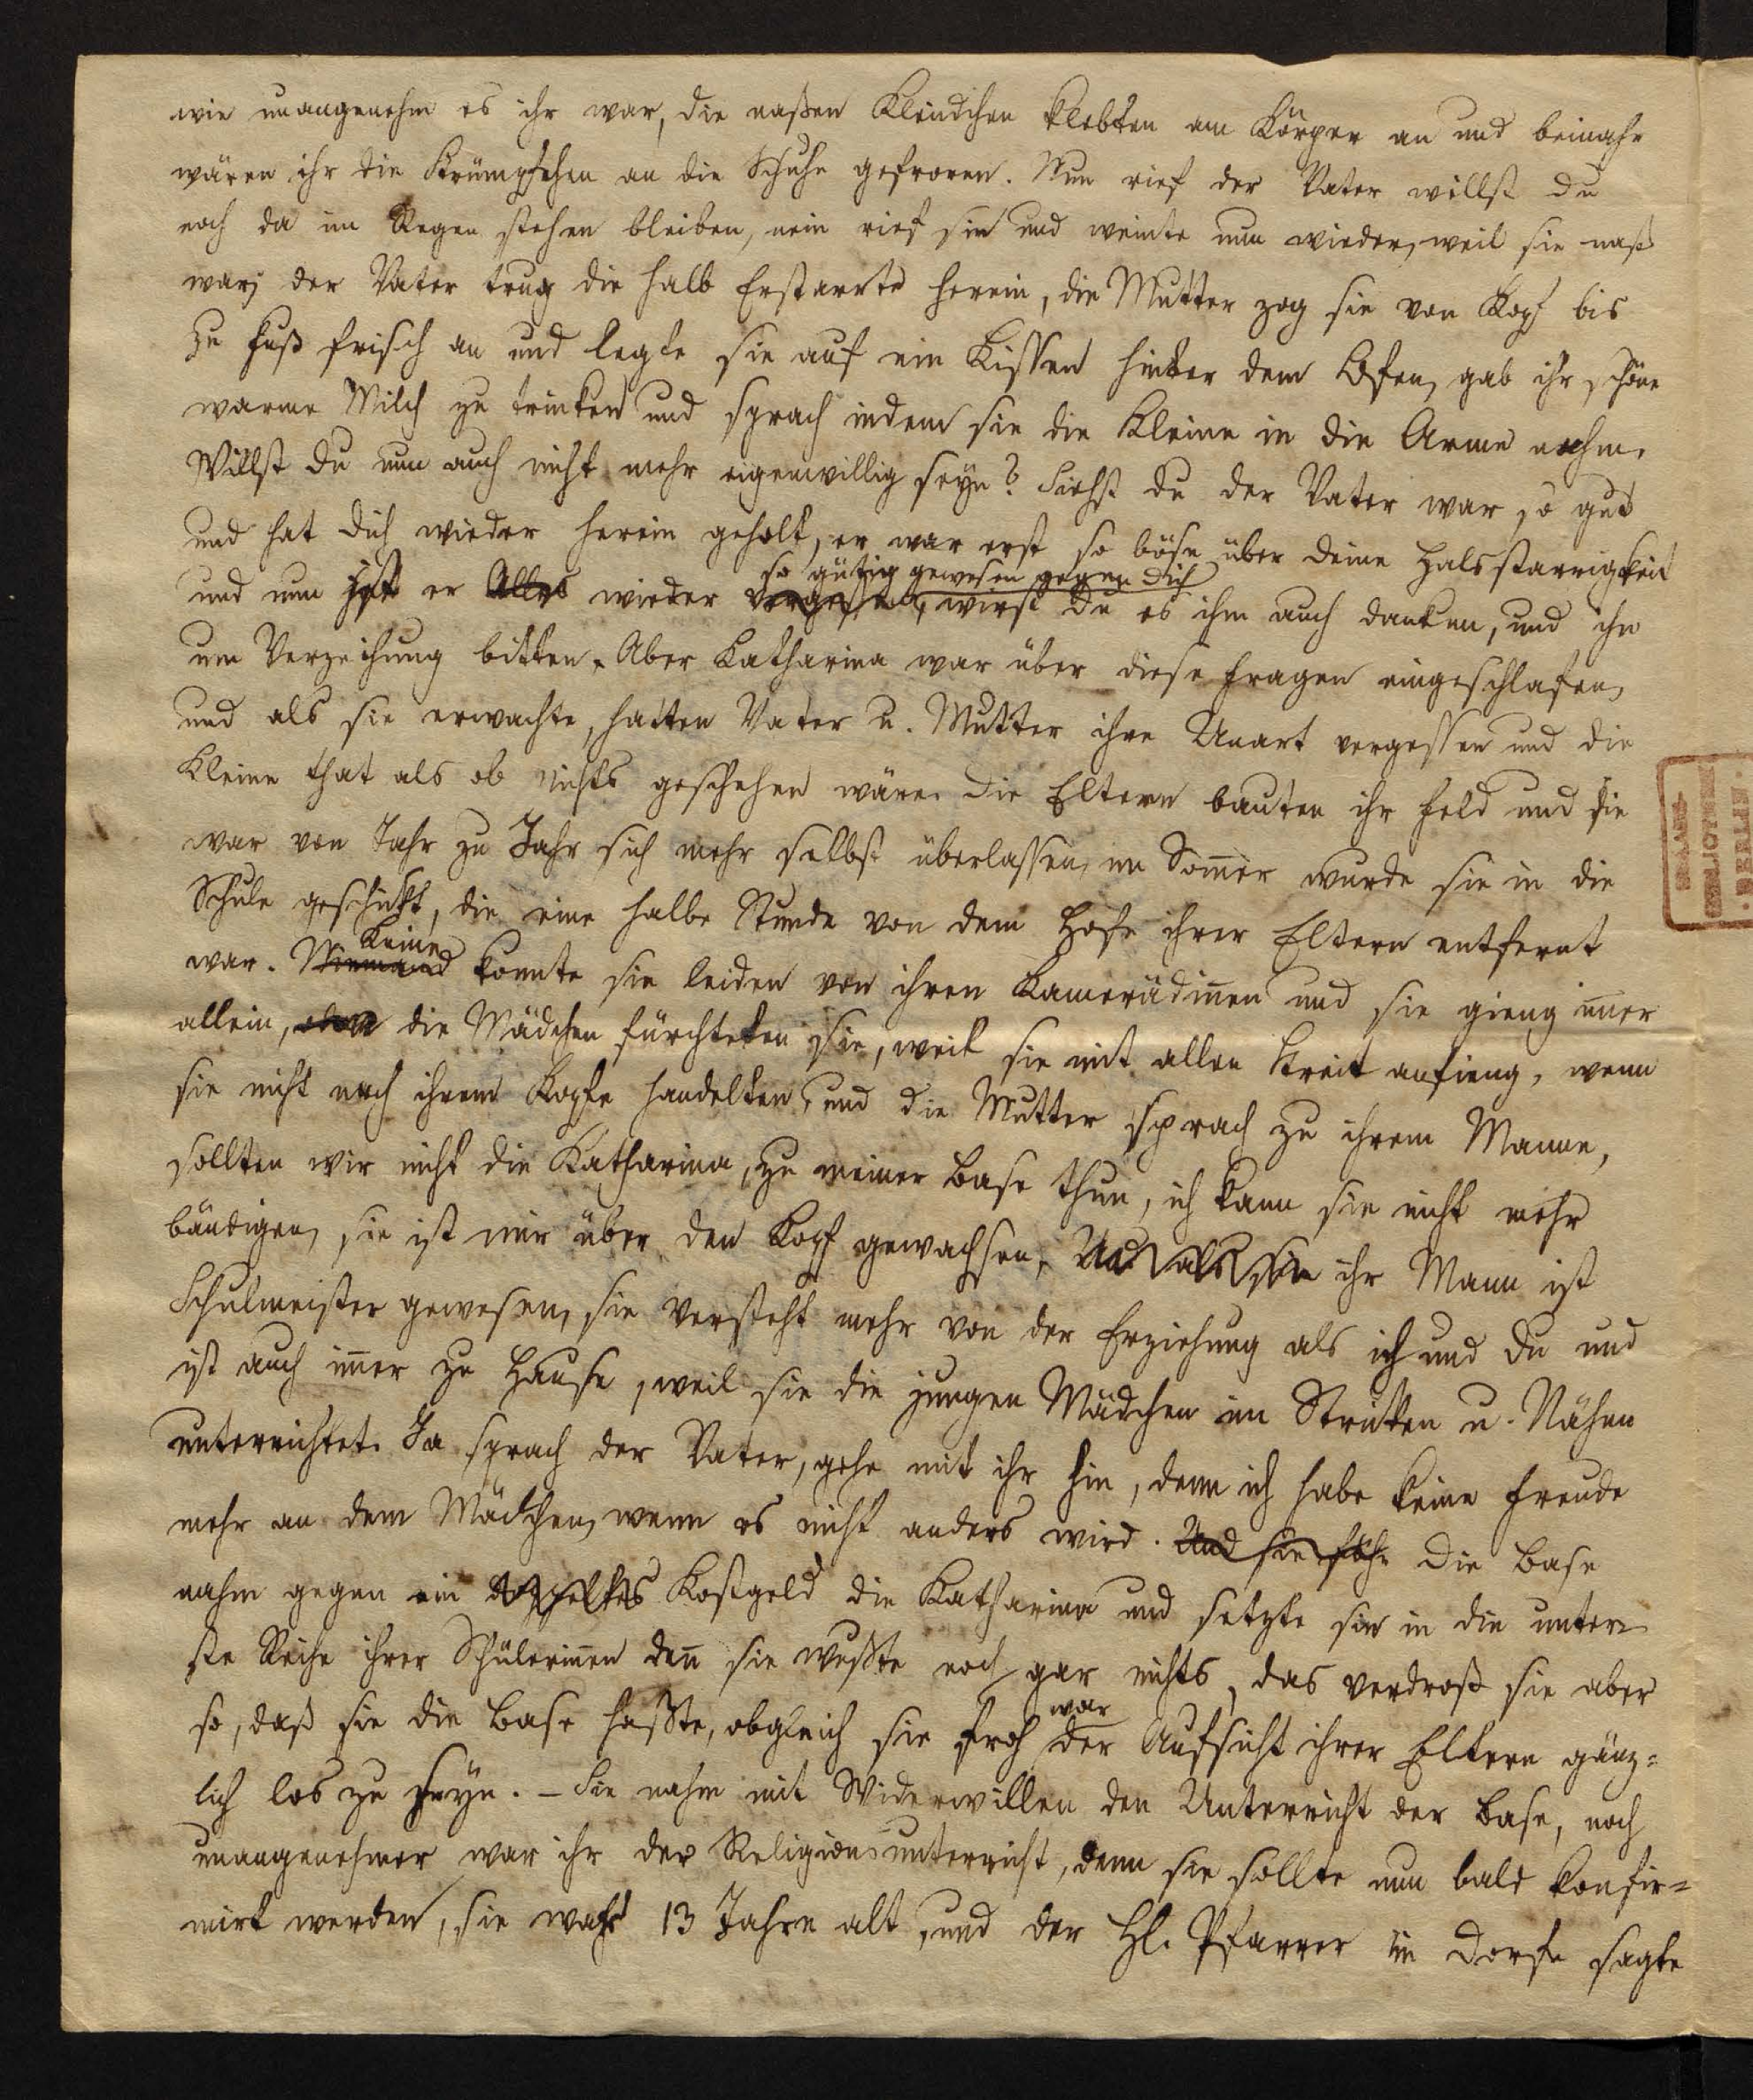 wie unangenehm es ihr war, die naßen Kleidchen klebten am Körper an und beinahe
wären ihr die Strümpfchen an die Schuhe gefroren. Nun rief der Vater willst du
noch da im Regen stehen bleiben, nein rief sie und weinte nun wieder, weil sie naß
war; der Vater trug die halb Erstarrte herein, die Mutter zog sie von Kopf bis
zu Fuß frisch an und legte sie auf ein Kissen hinter dem Ofen, gab ihr schöne
warme Milch zu trinken und sprach indem sie die Kleine in die Arme nahm.
Willst du nun auch nicht mehr eigenwillig seyn? Siehst du der Vater war so gut
und hat dich wieder herein geholt, er war erst so böse über deine Halsstarrigkeit
so gütig gewesen gegen dich
und nun ist er Alles wieder vergessen, wirst du es ihm auch danken, und ihn
um Verzeihung bitten. Aber Katharina war über diese Fragen eingeschlafen,
und als sie erwachte, hatten Vater u. Mutter ihre Unart vergessen und die
Kleine that als ob nichts geschehen wäre. Die Eltern bauten ihr Feld und sie
war von Jahr zu Jahr sich mehr selbst überlassen, im Som̅er wurde sie in die
Schule geschickt, die eine halbe Stunde von dem Hofe ihrer Eltern entfernt
Keine
war. Niemand konnte sie leiden von ihren Kamerädin̅en und sie gieng im̅er
allein, denn die Mädchen fürchteten sie, weil sie mit allen Streit anfieng, wenn
sie nicht nach ihrem Kopfe handelten, und die Mutter sprach zu ihrem Manne,
sollten wir nicht die Katharina, zu meiner Base thun, ich kann sie nicht mehr
bändigen, sie ist mir über den Kopf gewachsen, Und als sie ihr Mann ist
Schulmeister gewesen, sie versteht mehr von der Erziehung als ich und du und
ist auch im̅er zu Hause, weil sie die jungen Mädchen im Stricken u. Nähen
unterrichtet. Ja sprach der Vater, gehe mit ihr hin, denn ich habe keine Freude
mehr an dem Mädchen, wenn es nicht anders wird. Und sie Die Base
nahm gegen ein doppeltes Kostgeld die Katharina und setzte sie in die unter=
ste Reihe ihrer Schülerin̅en den̅ sie wußte noch gar nichts, das verdroß sie aber
war
so, daß sie die Base haßte, obgleich sie froh der Aufsicht ihrer Eltern gänz=
lich los zu seyn. – Sie nahm mit Widerwillen den Unterricht der Base, noch
unangenehmer war ihr der Religionsunterricht, denn sie sollte nun bald konfir=
mirt werden, sie war 13 Jahre alt, und der Hl. Pfarrer im Dorfe sagte
BERLIN.